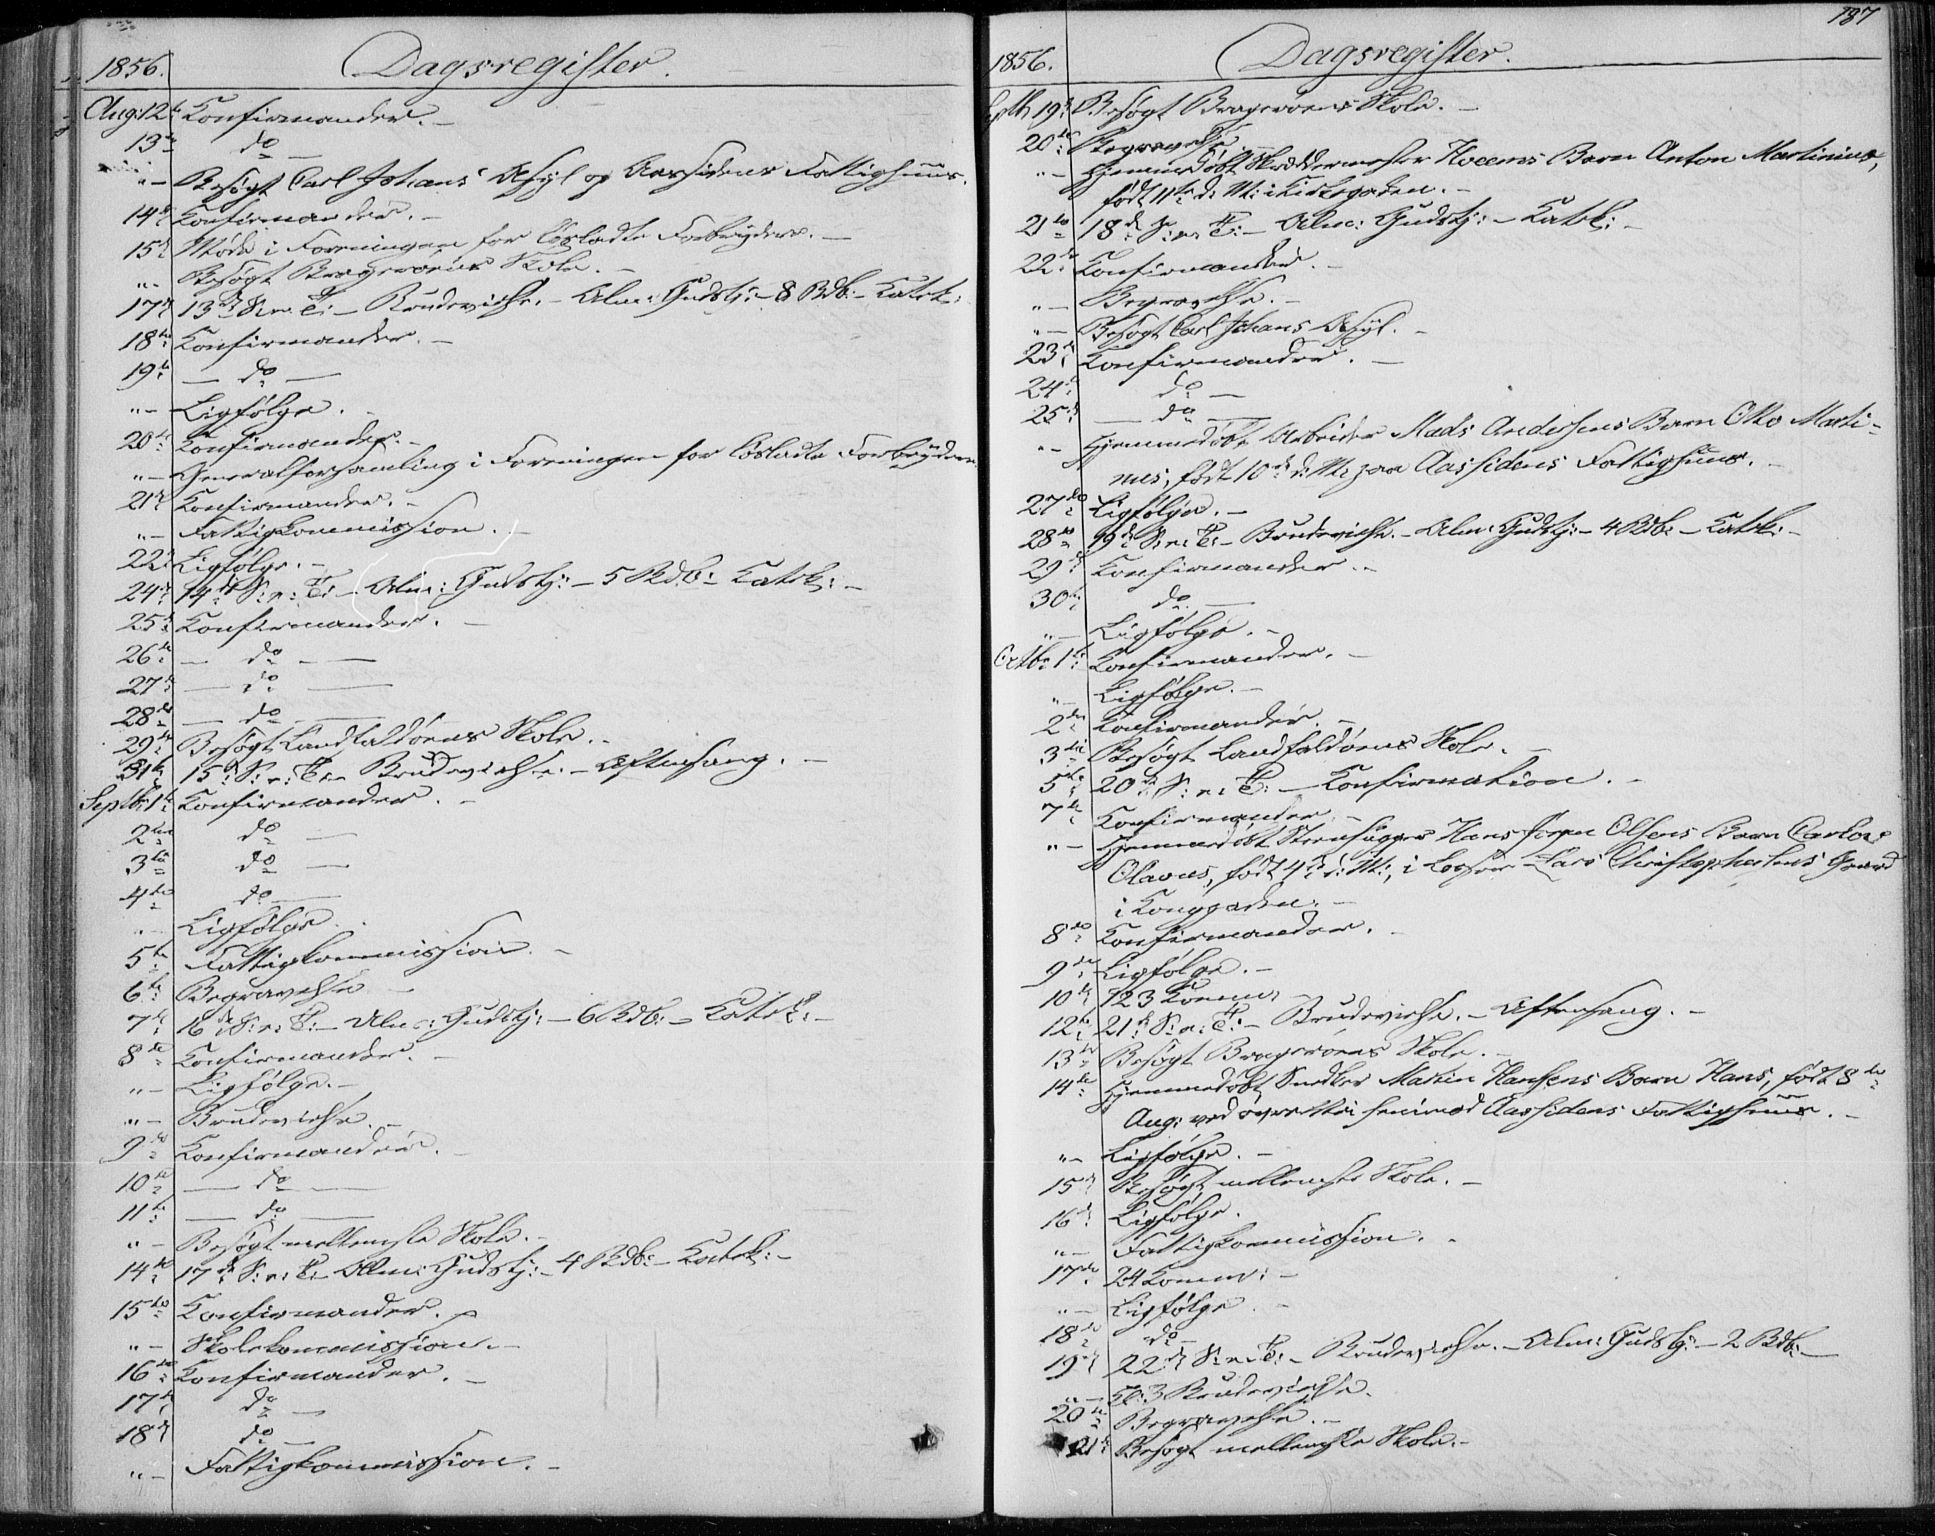 1856. Dagsregister.
Aug: 12te Konfirmander. –
13de do –
" – Besøgt Carl Johans Asyl og Aassidens Fattighuus.
14de Konfirmander. –
15de Møde i Foreningen for løsladte Forbrydere. –
" – Besøgt Bragerøens Skole. –
17de 13de S. n. T: – Brudevielse. – Alm: Gudstj: – 8 Bdb: – Katek:
18de Konfirmander. –
19de — do —
" – Ligfølge. –
20de Konfirmander. –
" – Generalforsamling i Foreningen for løsladte Forbrydere.
21de Konfirmander. –
" – Fattigkommission. –
22de Ligfølge. –
24de 14de S: n: T: – Alm: Gudstj: – 5 Bdb: Katek: –
25de Konfirmander. –
26de — do — —
27de — do —
28de — do —
29de Besøgt Landfaldøens Skole. –
31te 15de S: n: T: – Brudevielse. – Aftensang. –
Septb: 1te Konfirmander. –
2den do —
3die do —
4de do —
" – Ligfølge.
5te Fattigkommission. –
6te Begravelse –
7de 16de S: n: T: – Alm: Gudstj: – 6 Bdb: – Katek: –
8de Konfirmander. –
" – Ligfølge. –
" – Brudevielse. –
9de Konfirmander. –
10de — do —
11te — do —
" – Besøgt mellemste Skole. –
14de 17de S: n: T: – Alm: Gudstj: – 4 Bdb: – Katek: –
15de Konfirmander. –
" – Skolekommission. –
16de Konfirmander. –
17de do –
18de do –
" – Fattigkommission. –
187
1856. Dagsregister.
Septb: 19de Besøgt Bragerøens Skole. –
20de Begravelse. –
" – Hjemmedøbt Skræddermester Hoeems Barn Anton Martinius,
født 11te d: M: i Kirkegaden. –
21de 18de S: n: T: – Alm: Gudstj: – Katek: –
22de Konfirmander. –
" – Begravelse. –
" – Besøgt Carl Johans Asyl. –
23de Konfirmander. –
24de do –
25de — do —
" – Hjemmedøbt Arbeider Mads Andersens Barn Otto Marti-
nus, født 10de d: M: paa Aassidens Fattighuus. –
27de Ligfølge. –
28de 19de S: n: T: – Brudevielse. – Alm: Gudstj: – 4 Bdb: – Katek: –
29de Konfirmander. –
30te do —
" – Ligfølge. –
Octb: 1te Konfirmander. –
" – Ligfølge. –
2den Konfirmander. –
3die Besøgt Landfaldøens Skole. –
5te 20de S: n: T: – Konfirmation. –
7de Konfirmander. –
" – Hjemmedøbt Steenhugger Hans Jørgen Olsens Barn Carl
Olavus, født 4de d: M:, i Lars Christophersens Gaard
i Konggaden. –
8de Konfirmander. –
9de Ligfølge. –
10de 123 Komm: –
12te 21de S: n: T: – Brudevielse. – Aftensang. –
13de Besøgt Bragerøens Skole. –
14de Hjemmedøbt Snedker Martin Hansens Barn Hans, født 8de
Aug: ved øvre Vei henimod Aassidens Fattighuus. –
" – Ligfølge. –
15de Besøgt mellemste Skole. –
16de Ligfølge.
" – Fattigkommission. –
17de 24 Komm: –
" – Ligfølge. –
18de do –
19de 22de S: n: T: – Brudevielse. – Alm: Gudstj: – 2 Bdb: –
" – 3 Brudevielse.
20de Begravelse. –
21de Besøgt mellemste Skole. –